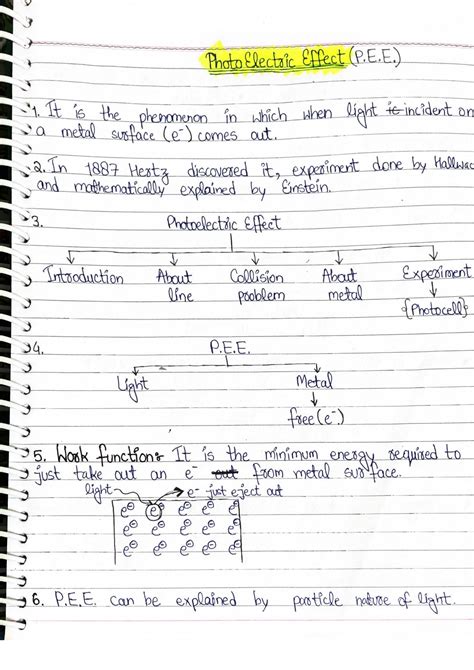 PhotoElectric Effect (P.E.E.)
1. It is the phenomenon in which when light is incident on
a metal surface (e⁻) comes out.
2. In 1887 Hertz discovered it, experiment done by Hallwac
and mathematically explained by Einstein.
3. Photoelectric Effect
Introduction About Collision About Experiment
line problem metal {Photocell}
4. P.E.E.
Light Metal
free(e⁻)
5. Work function:- It is the minimum energy required to
just take out an e⁻ out from metal surface.
light e⁻ just eject out
e⊖ e⊖ e⊖ e⊖ e⊖
e⊖ e⊖ e⊖ e⊖ e⊖
e⊖ e⊖ e⊖ e⊖ e⊖
6. P.E.E. can be explained by particle nature of light.